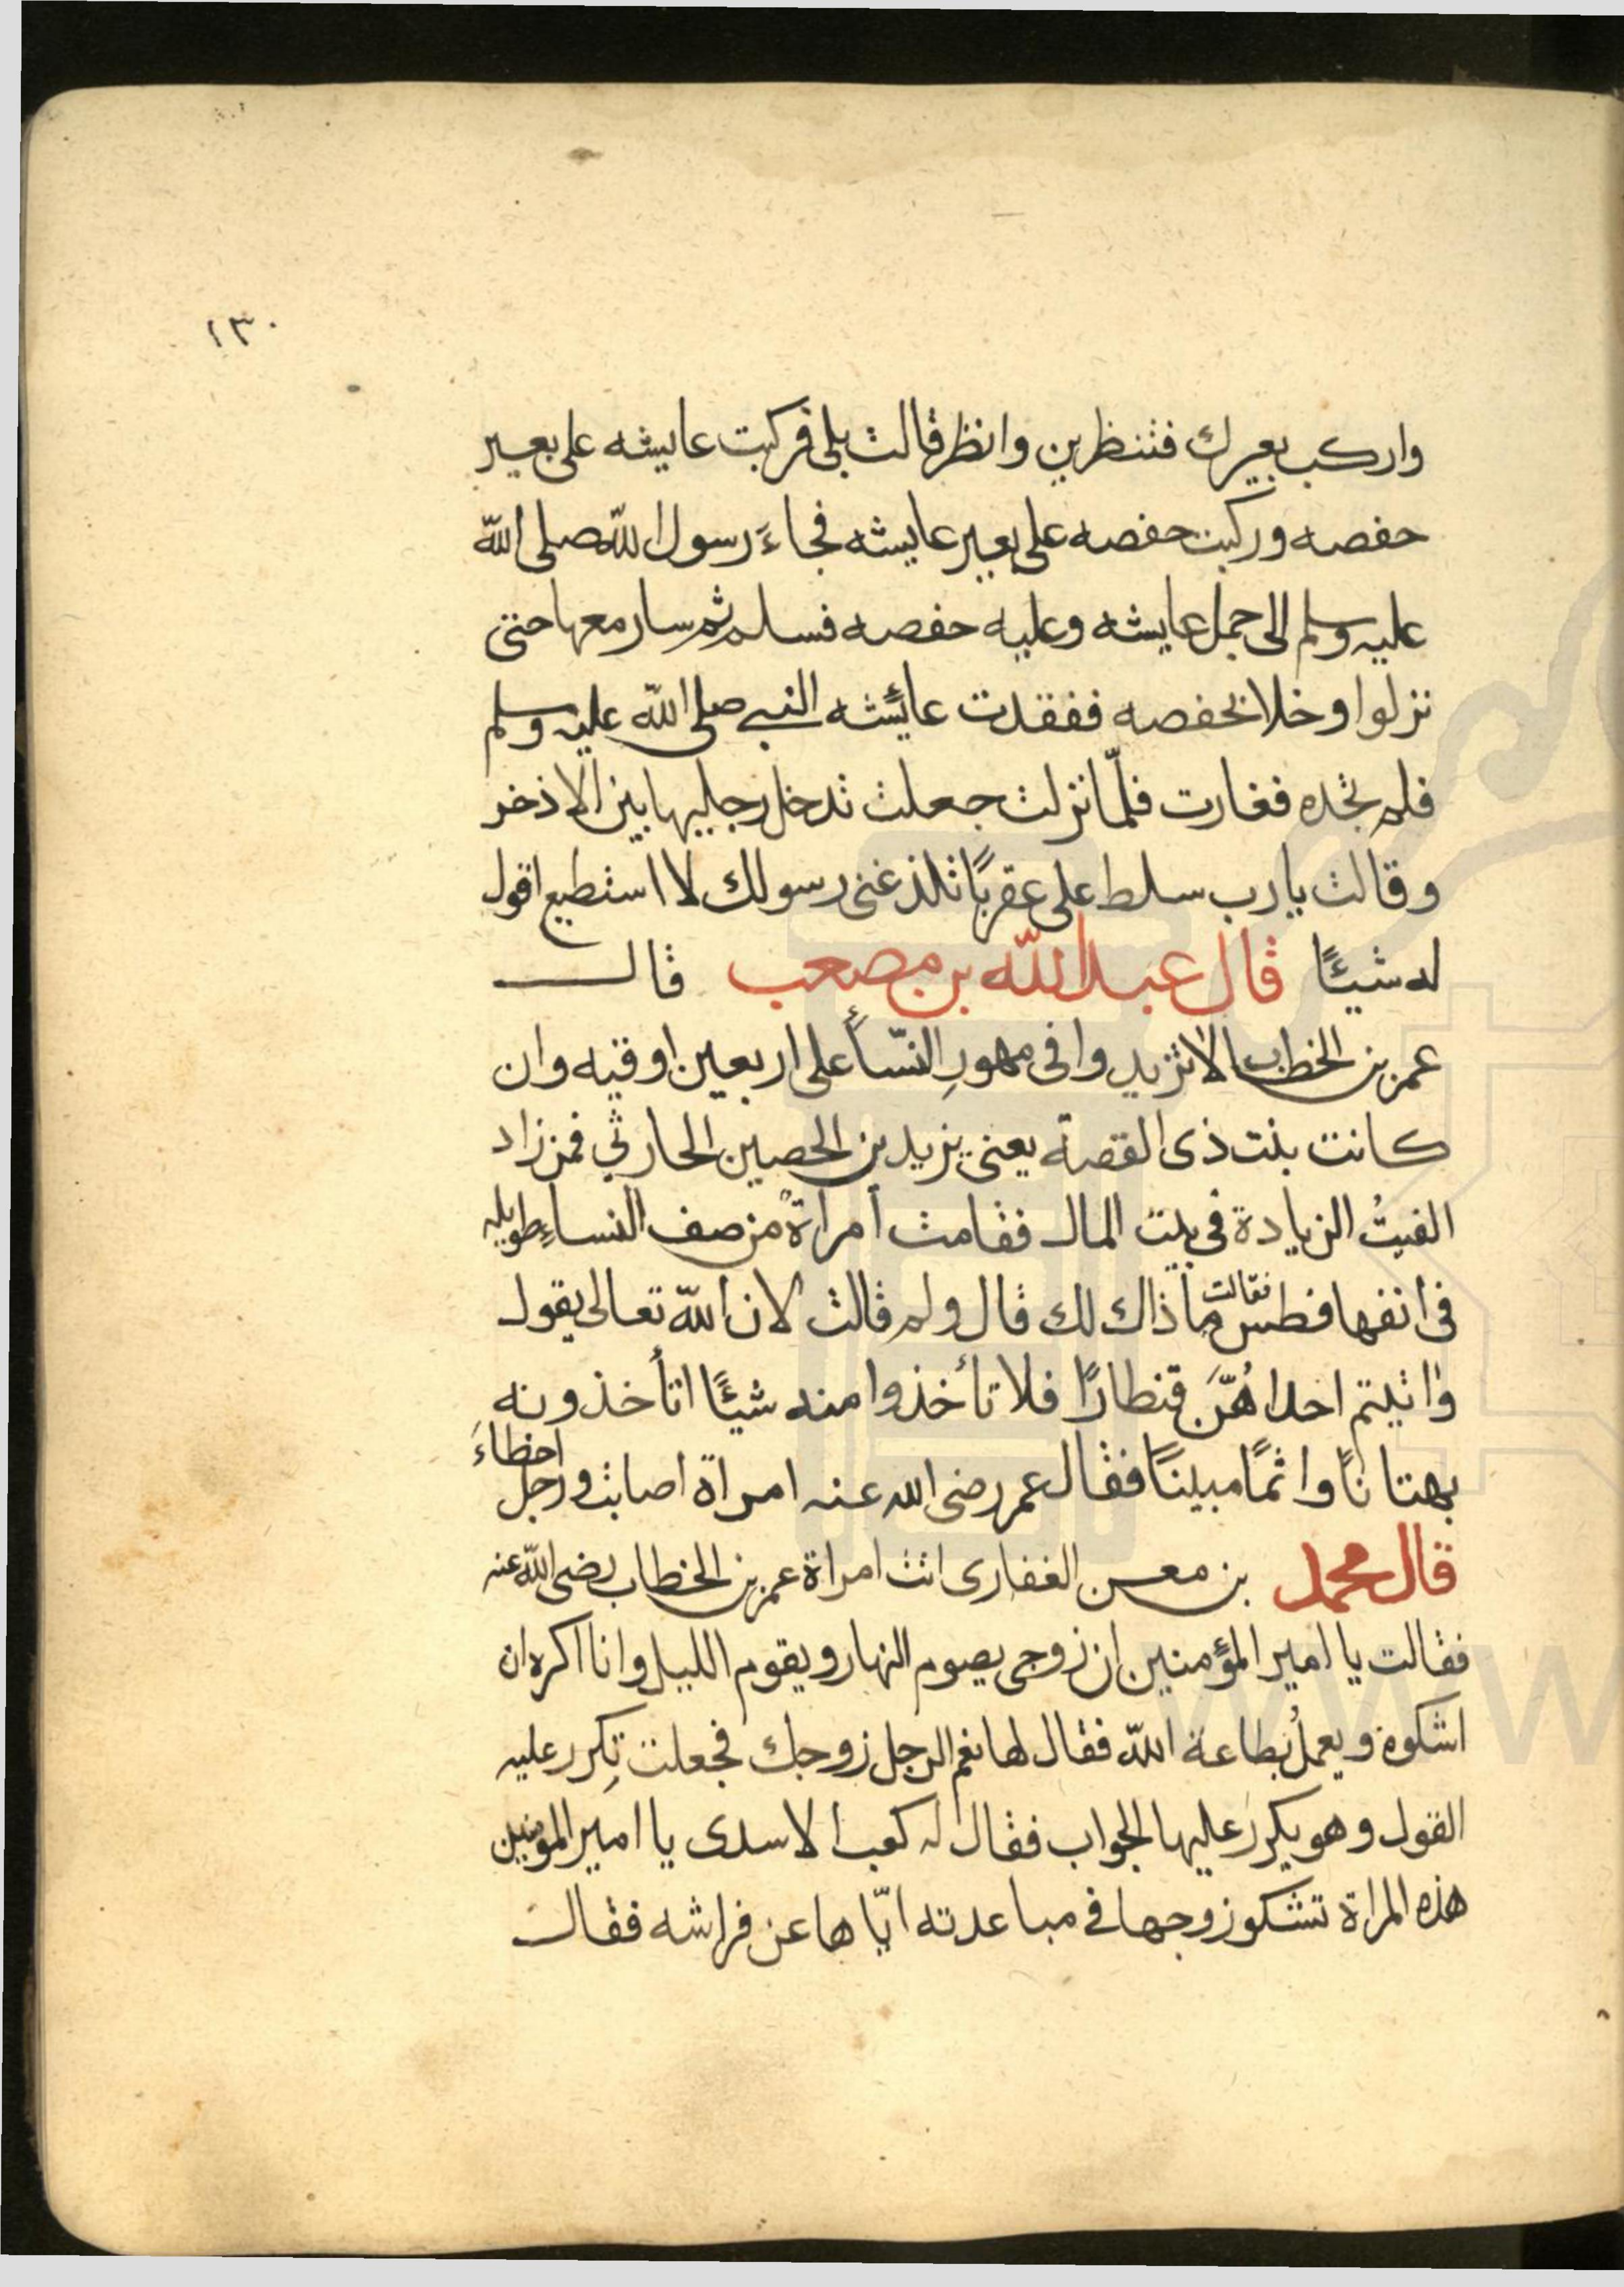 ١٣٠
واركب بعيرك فتنظرين وانظر قالت بلى فركبت عايشه على بعير
حفصه وركبت حفصه على بعير عايشه فجاءَ رسول اللّه صلى اللّه
عليه وسلم الى جمل عايشه وعليه حفصه فسلم ثم سار معها حتى
نزلوا وخلا بحفصه ففقدت عائشه النبي صلى اللّه عليه وسلم
فلم تجده فغارت فلمّا نزلت جعلت تدخل رجليها بين الاذخر
وقالت يارب سلط على عقربًا تلذغنى رسولك لا استطيع اقول
له شيئًا قال عبد اللّه بن مصعب قال
عمر بن الخطاب الا تزيدوا فى مهورِ النسّأ على اربعين اوقيه وان
كانت بنت ذى القصة يعنى يزيد بن الحصين الحارثي فمن زاد
القيتُ الزيادة فى بيت المال فقامت أمرأة من صف النساءِ طويله
فى انفها فطس فقالت ما ذاك لك قال ولم قالت لان اللّه تعالى يقول
واتيتم احداهُنَّ قنطارًا فلا تأخذوا منه شيئًا اتأخذونه
بهتانًا واثمًا مبينًا فقال عمر رضى الله عنه امراة اصابت ورجل اخطاءَ
قال محمد بن معن الغفارى اتت امراة عمر بن الخطاب رضى اللّه عنه
فقالت يا امير المؤمنين ان زوجى يصوم النهار ويقوم الليل وانا اكره ان
اشكوه ويعملُ بطاعة اللّه فقال لها نعم الرجل زوجك فجعلت تكرر عليه
القول وهو يكرر عليها الجواب فقال له كعب الاسدى يا امير المومنين
هذه المراة تشكو زوجها فى مباعدته ايّاها عن فراشه فقال